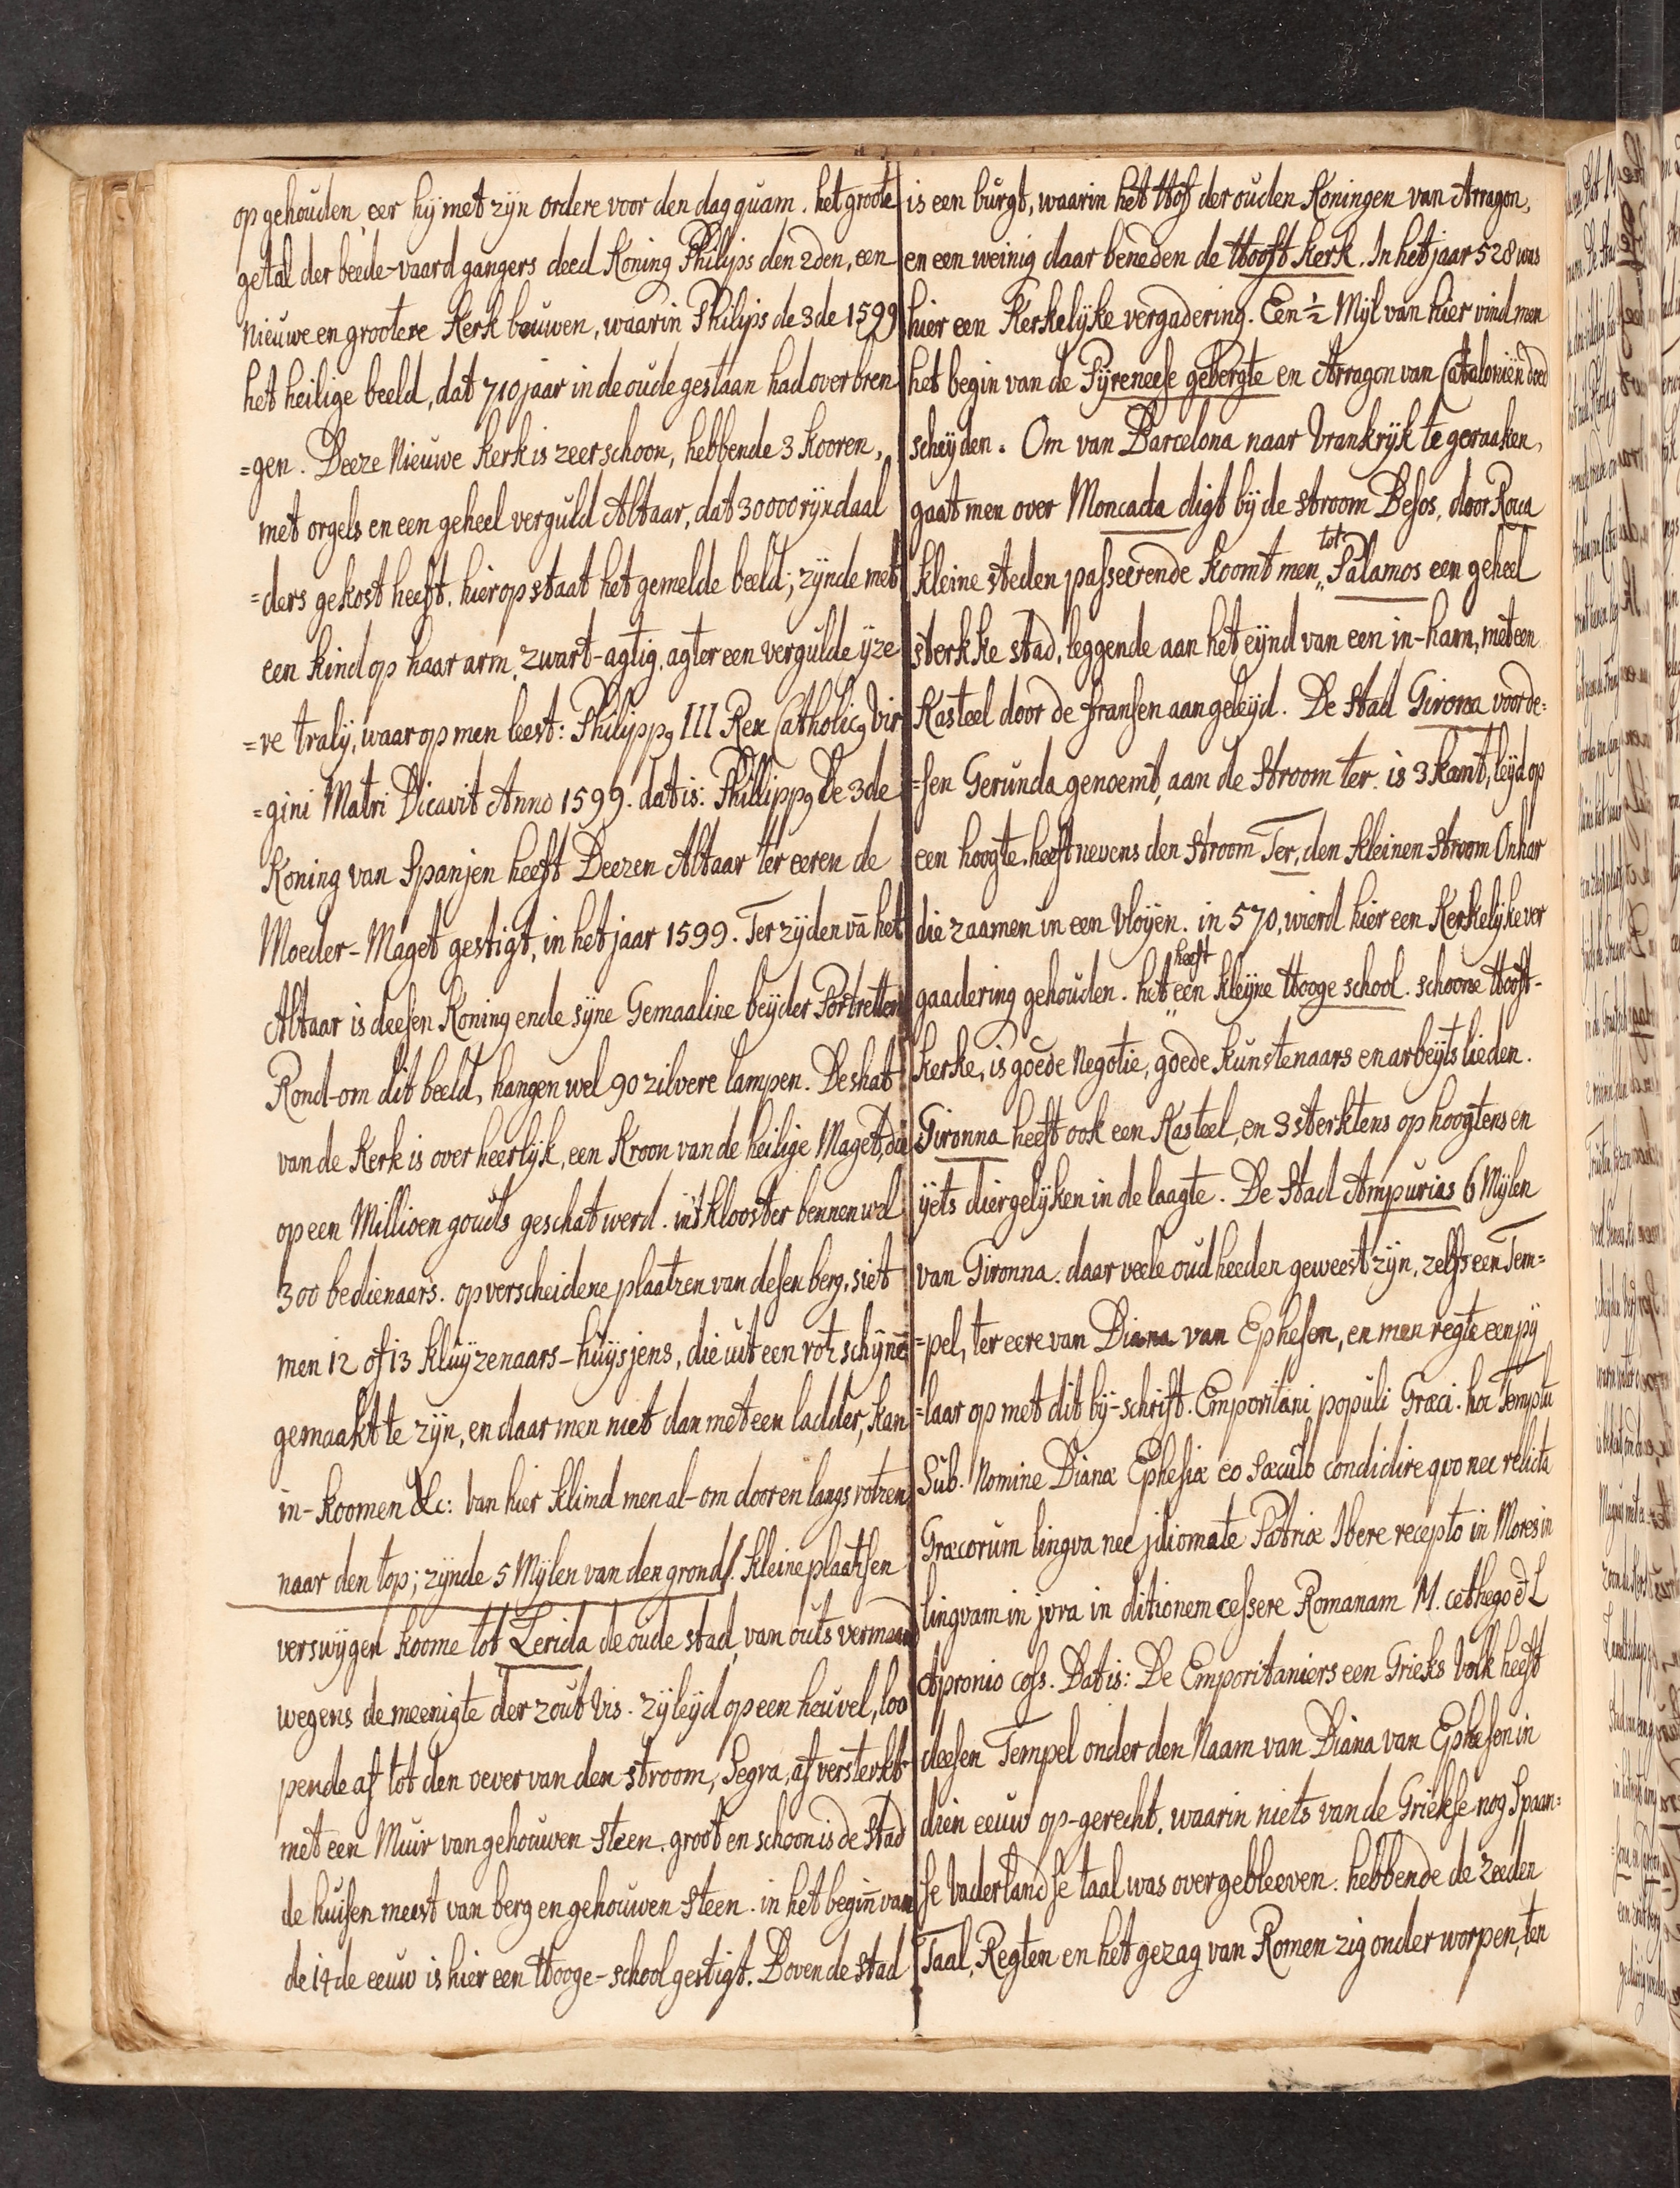 op gehouden, eer hij met zijn ordere voor den dag quam. het groote
getal der beede-vaard gangers deed Koning Philips den 2den, een
nieuwe en grootere Kerk bouwen, waarin Philips de 3de 1599
het heilige beeld, dat 710 jaar in de oude gestaan had over bren
=gen. Deeze nieuwe kerk is zeer schoon, hebbende 3 kooren,
met orgels en een geheel verguld Altaar, dat 30000 rijxdaal
=ders gekost heeft. hier op staat het gemelde beeld; zijnde met
een kind op haar arm, zwart-agtig, agter een vergulde ijze
=re tralij, waar op men leest: Philippꝰ III Rex Catholicꝰ Vir
=gini Matri Dicavit Anno 1599. dat is: Phillippꝰ De 3de
Koning van Spanjen heeft Deezen Altaar ter eeren de
Moeder-Maget gestigt, in het jaar 1599. Ter zijden vā het
Altaar is deesen Koning ende sijne Gemaaline beijder Portretten
Rond-om dit beeld, hangen wel 90 zilvere lampen. De shat
van de Kerk is over heerlijk, een Kroon van de heilige Maget, die
op een Millioen gouds geschat werd. in't klooster bennen wel
300 bedienaars. op verscheidene plaatzen van desen berg, siet
men 12 of 13 kluijzenaars-huijsjens, die uit een rotz schijnē
gemaakt te zijn, en daar men niet dan met een ladder, kan
in-koomen &c: van hier klimd men al-om door en langs rotzen
naar den top; zijnde 5 Mijlen van den grond/. kleine plaatsen
verswijgen koome tot Lerida de oude stad, van outs vermaard
wegens de meenigte der zout vis. zij leijd op een heuvel, loo
pende af tot den oever van den stroom, Segra, af versterkt
met een Muir van gehouwen steen. groot en schoon is de stad
de huisen meest van berg en gehouwen steen. in het begiñ van
de 14de eeuw is hier een Hooge-school gestigt. Boven de stad
is een burgt, waarin het Hof der ouden Koningen van Arragon,
en een weinig daar beneden de Hooft kerk. In het jaar 528 was
hier een Kerkelijke vergadering. Een ½ Mijl van hier vind men
het begin van de Pijreneese gebergte en Arragon van Cataloniën doed
scheijden. Om van Barcelona naar Vrankrijk te geraaken,
gaat men over Moncada digt bij de stroom Besos, door Roca
tot
kleine steden passeerende koomt men „ Palamos een geheel
sterkke stad, leggende aan het eijnd van een in-ham, met een
Kasteel door de fransen aangeleijd. De Stad Girona voorde=
=sen Gerunda genoemt, aan de stroom ter. is 3 kant, leijd op
een hoogte. heeft nevens den stroom Ter, den kleinen stroom Onhar
die zaamen in een vloijen. in 570, wierd hier een Kerkelijke ver
heeft
gaadering gehouden. het „ een kleijne Hooge school. schoone Hooft-
kerke, is goede negotie, goede kunstenaars en arbeijts lieden.
Gironna heeft ook een Kasteel, en 3 sterktens op hoogtens en
ijets diergelijken in de laagte. De stad Ampurias 6 Mijlen
van Gironna. daar veele oudheeden geweest zijn, zelfs een Tem=
=pel, ter eere van Diana van Ephesen, en men regte een pij
=laar op met dit bij-schrift. Emporitani populi Græci. hoc Templu
Sub. Nomine Dianæ Ephesiæ eo sæculo condidire qvo nec relicta
Græcorum lingva nec jdiomate Patriæ Ibere recepto in Mores in
lingvam in jvra in ditionem cessere Romanam M. cethego et L
Apronio coss. Dat is: De Emporitaniers een Grieks Volk heeft
deesen Tempel onder den Naam van Diana van Ephesen in
dien eeuw op-gerecht, waarin niets van de Griekse nog Spaan=
se Vaderlandse taal was overgebleeven. hebbende de zeeden
Taal, Regten en het gezag van Romen zig onder worpen, ten